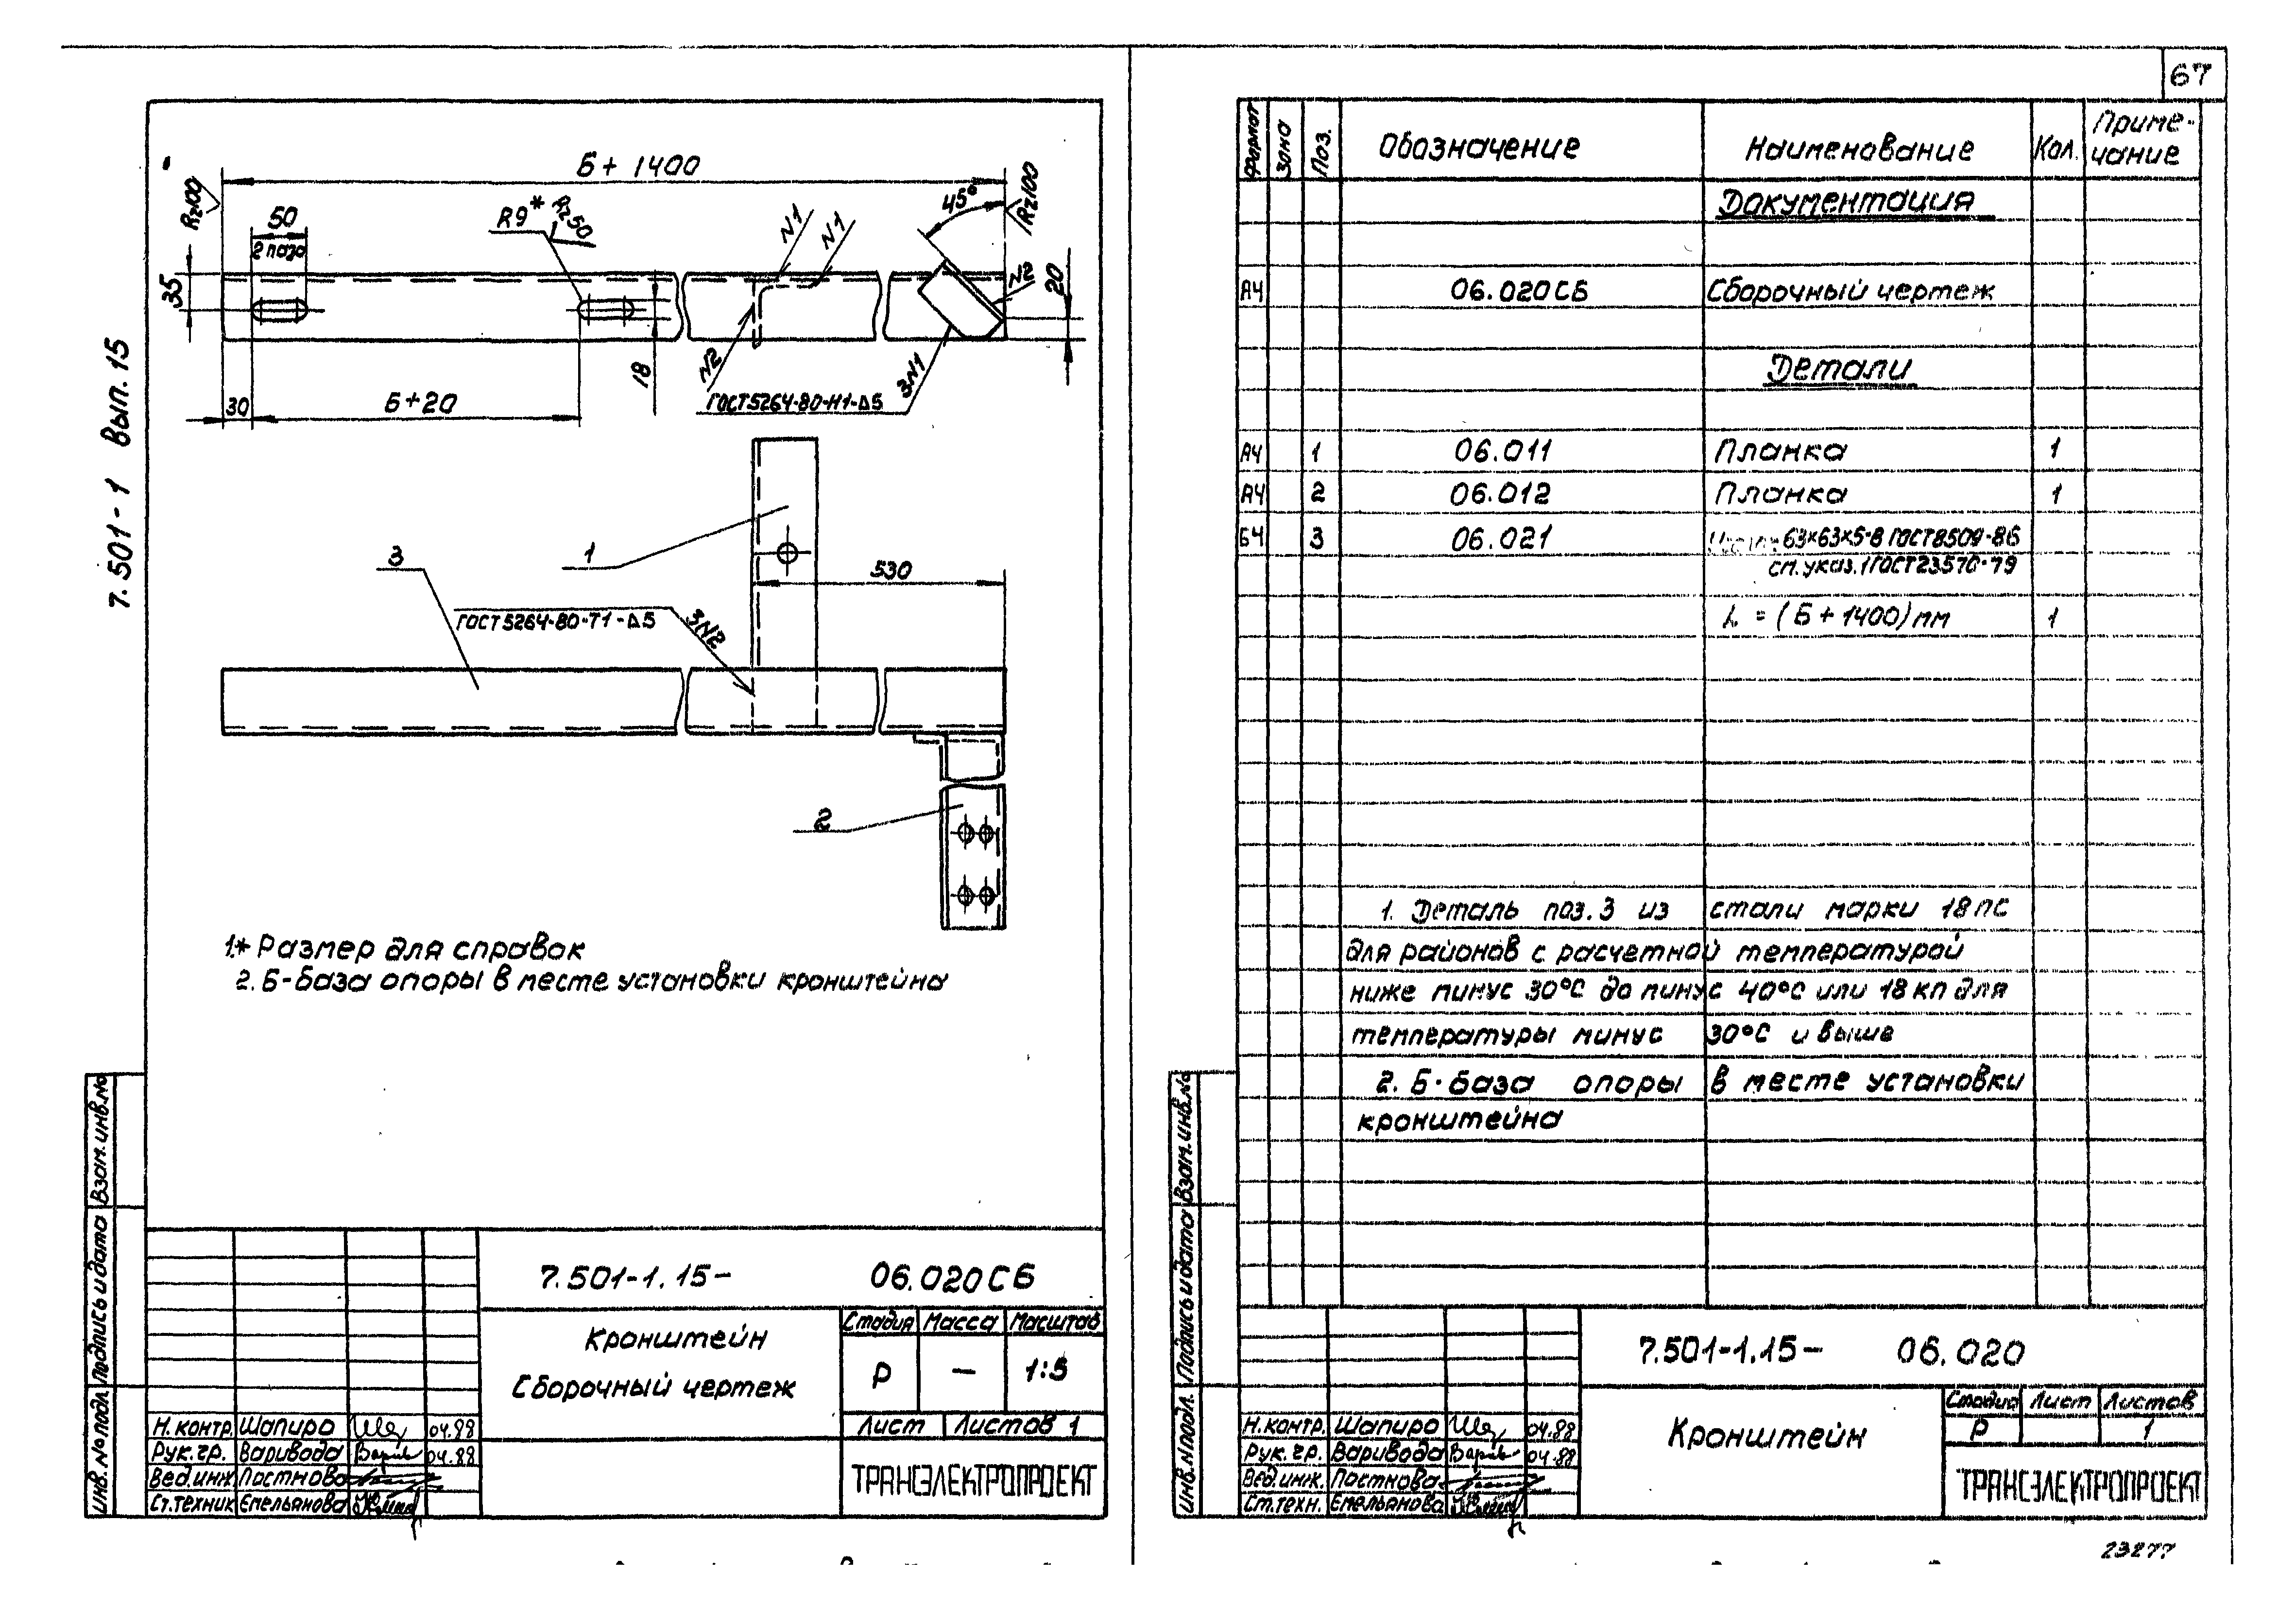 67
7.501-1 Вып. 15
Б+ 1400
Rz100
50
2 паза
R9*
Rz50
N1
N1
45°
Rz100
35
N2
20
18
N2
3N1
ГОСТ 5264-80-Н1-Δ5
30
Б+20
3
1
530
ГОСТ 5264-80-Т1-Δ5
3N2
2
1.* Размер для справок
2. Б-база опоры в месте установки кронштейна
7.501-1.15- 06.020СБ
Кронштейн
Сборочный чертеж
Стадия Масса Масштаб
Р — 1:5
Лист Листов 1
ТРАНСЭЛЕКТРОПРОЕКТ
Н.контр. Шапиро 04.88
Рук.гр. Варивода 04.88
Вед.инж. Постнова
Ст.техник Емельянова
Инв.№подл. Подпись и дата Взам.инв.№
Формат Зона Поз. Обозначение Наименование Кол. Приме-
чание
Документация
А4 06.020СБ Сборочный чертеж
Детали
А4 1 06.011 Планка 1
А4 2 06.012 Планка 1
БЧ 3 06.021 63×63×5-В ГОСТ 8509-86
см.указ.1 ГОСТ 23570-79
L = (Б+1400) мм 1
1. Деталь поз.3 из стали марки 18пс
для районов с расчетной температурой
ниже минус 30°С до минус 40°С или 18кп для
температуры минус 30°С и выше
2. Б-база опоры в месте установки
кронштейна
7.501-1.15- 06.020
Кронштейн
Стадия Лист Листов
Р 1
ТРАНСЭЛЕКТРОПРОЕКТ
Н.контр. Шапиро 04.88
Рук.гр. Варивода 04.88
Вед.инж. Постнова
Ст.техн. Емельянова
Инв.№подл. Подпись и дата Взам.инв.№
23277